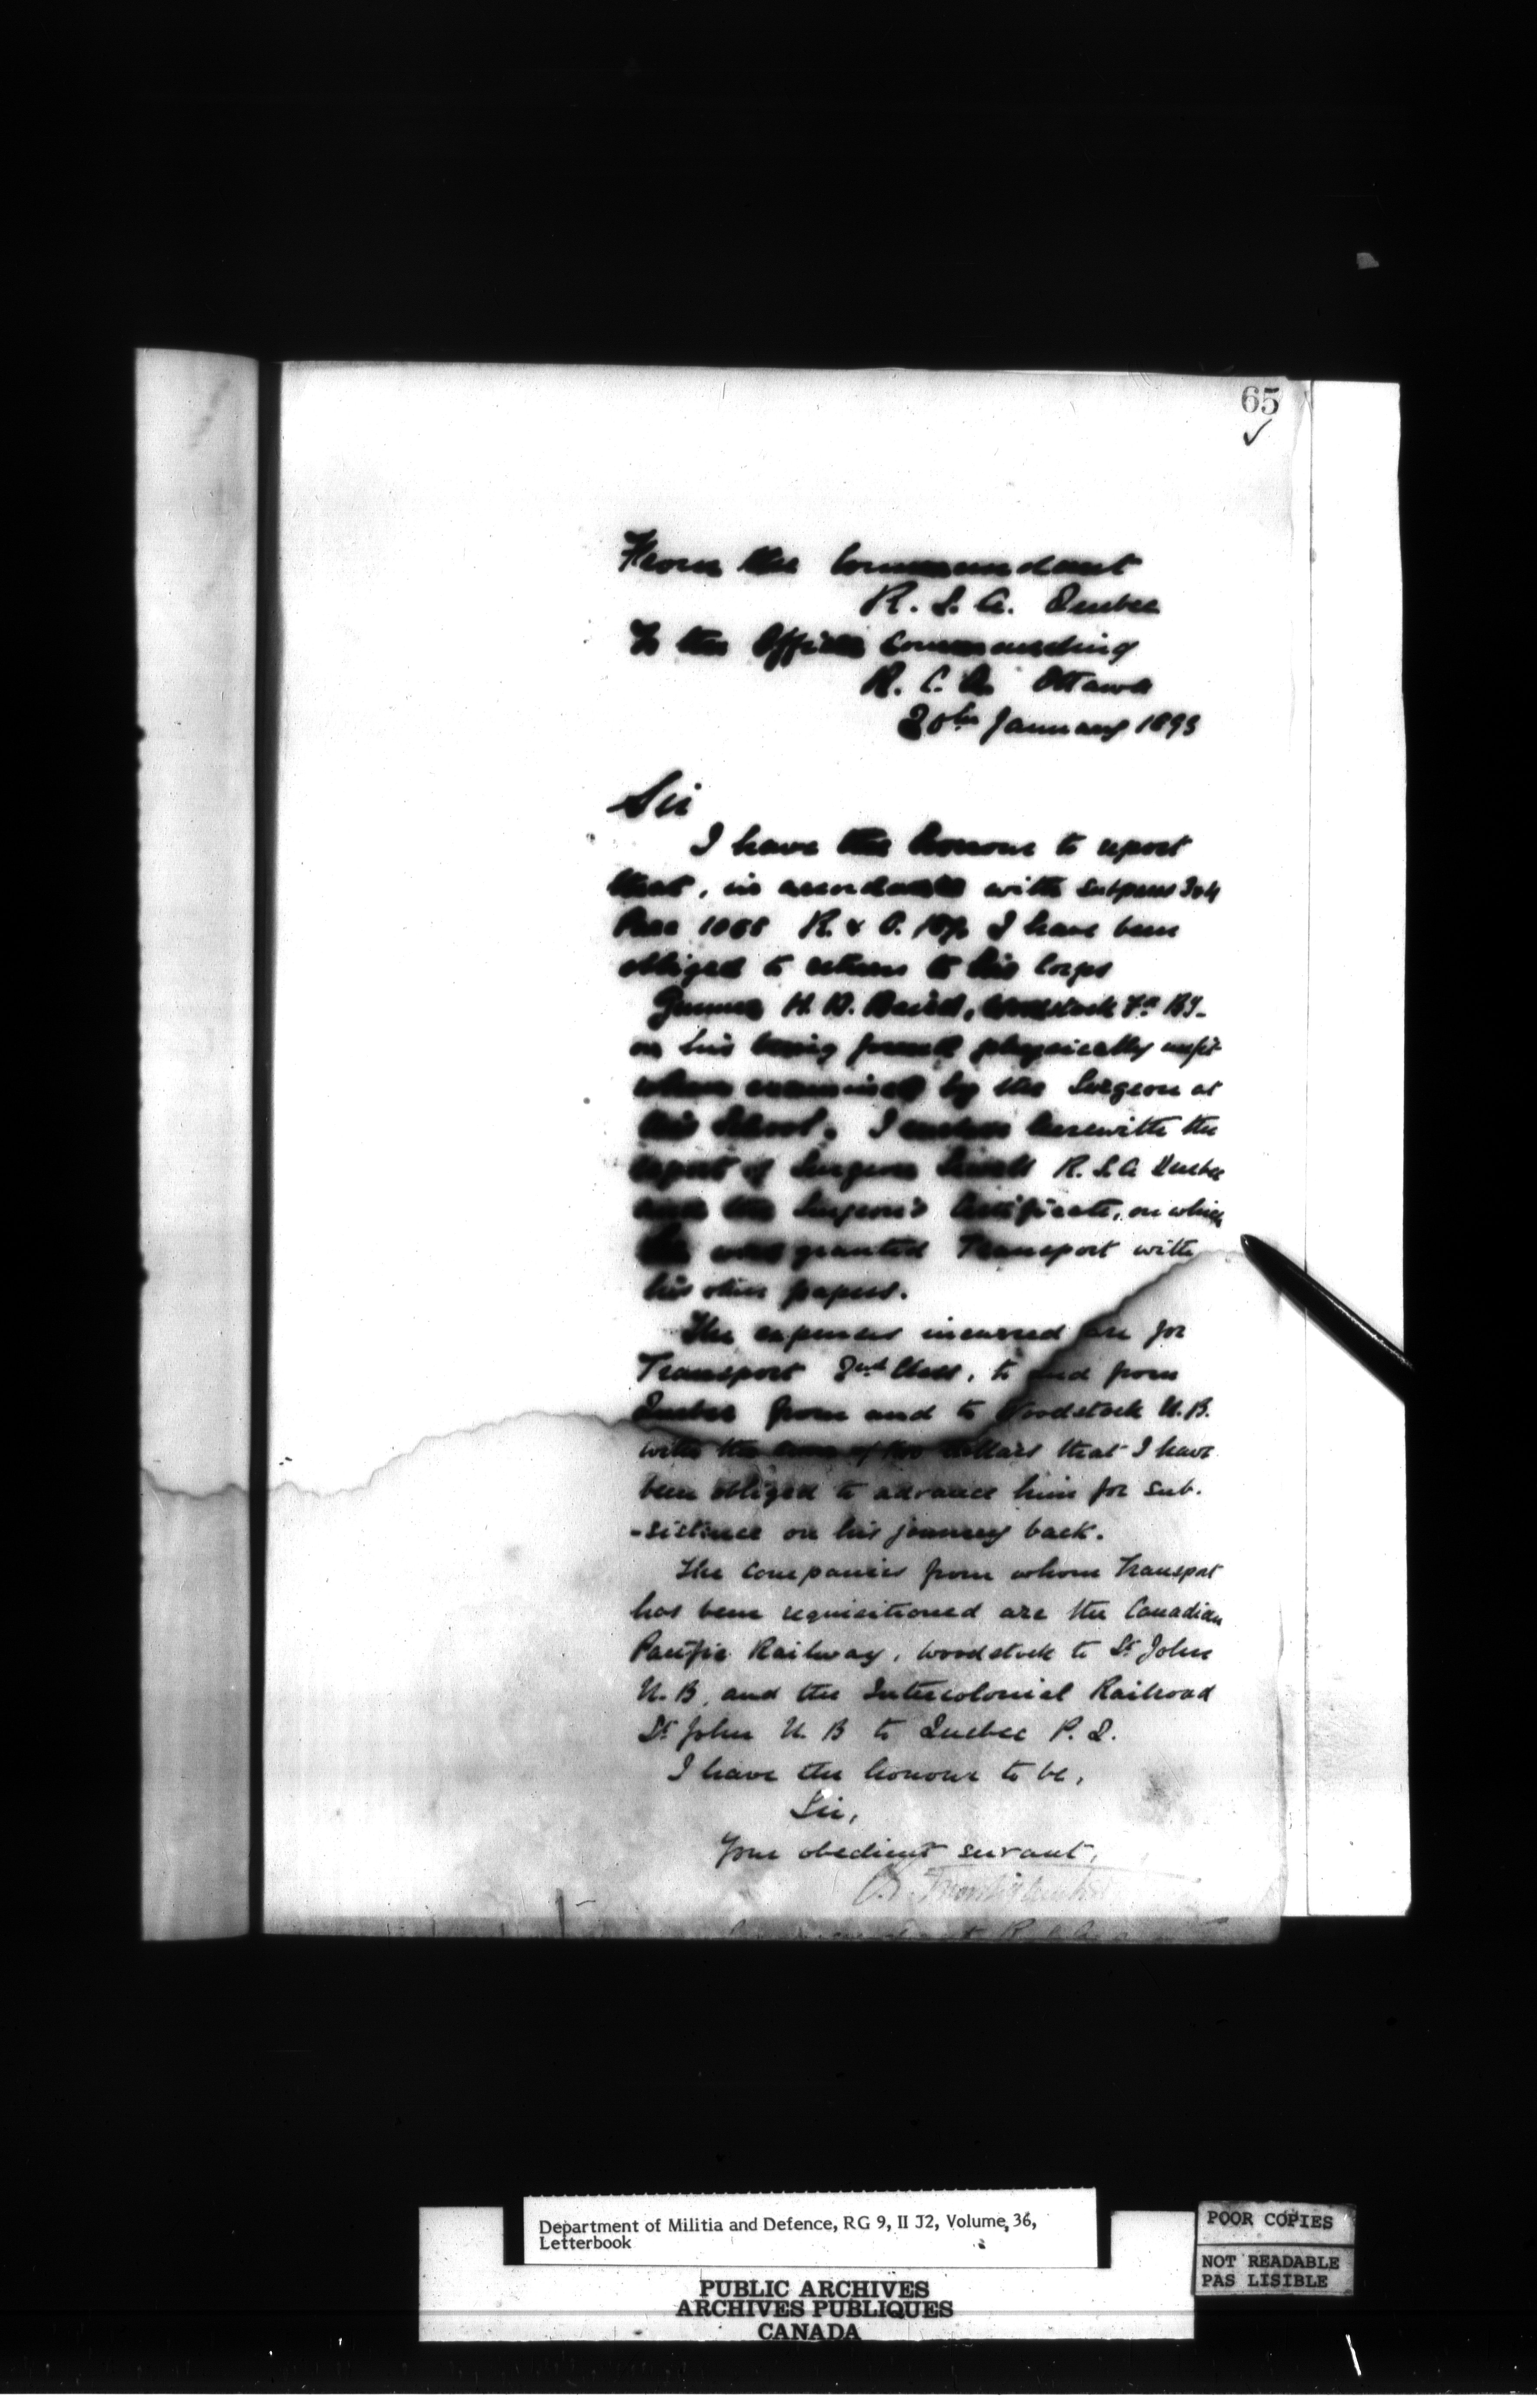 65
From the Commandant
R. S. A. Quebec
To the Officer Commanding
R. C. A. Ottawa
20th January 1893
Sir
I have the honour to report
that, in accordance with
Para 1068 R. & O. I have been
obliged to return to his Corps
Gunner H. D. Baird, Woodstock Fd By.
on his being found physically unfit
when examined by the Surgeon at
this School. I enclose herewith the
report of Surgeon Sewell R. S. A Quebec
and the Surgeon's Certificate, on which
he was granted Transport with
his other papers.
The expenses incurred are for
Transport 2nd Class, to and from
Quebec from and to Woodstock N. B.
with the sum of two dollars that I have
been obliged to advance him for sub-
-sistence on his journey back.
The Companies from whom Transport
has been requisitioned are the Canadian
Pacific Railway, Woodstock to St John
N. B, and the Intercolonial Railroad
St John N. B to Quebec P. Q.
I have the honour to be,
Sir,
Your obedient servant,
Department of Militia and Defence, RG 9, II J2, Volume, 36,
Letterbook
PUBLIC ARCHIVES
ARCHIVES PUBLIQUES
CANADA
POOR COPIES
NOT READABLE
PAS LISIBLE